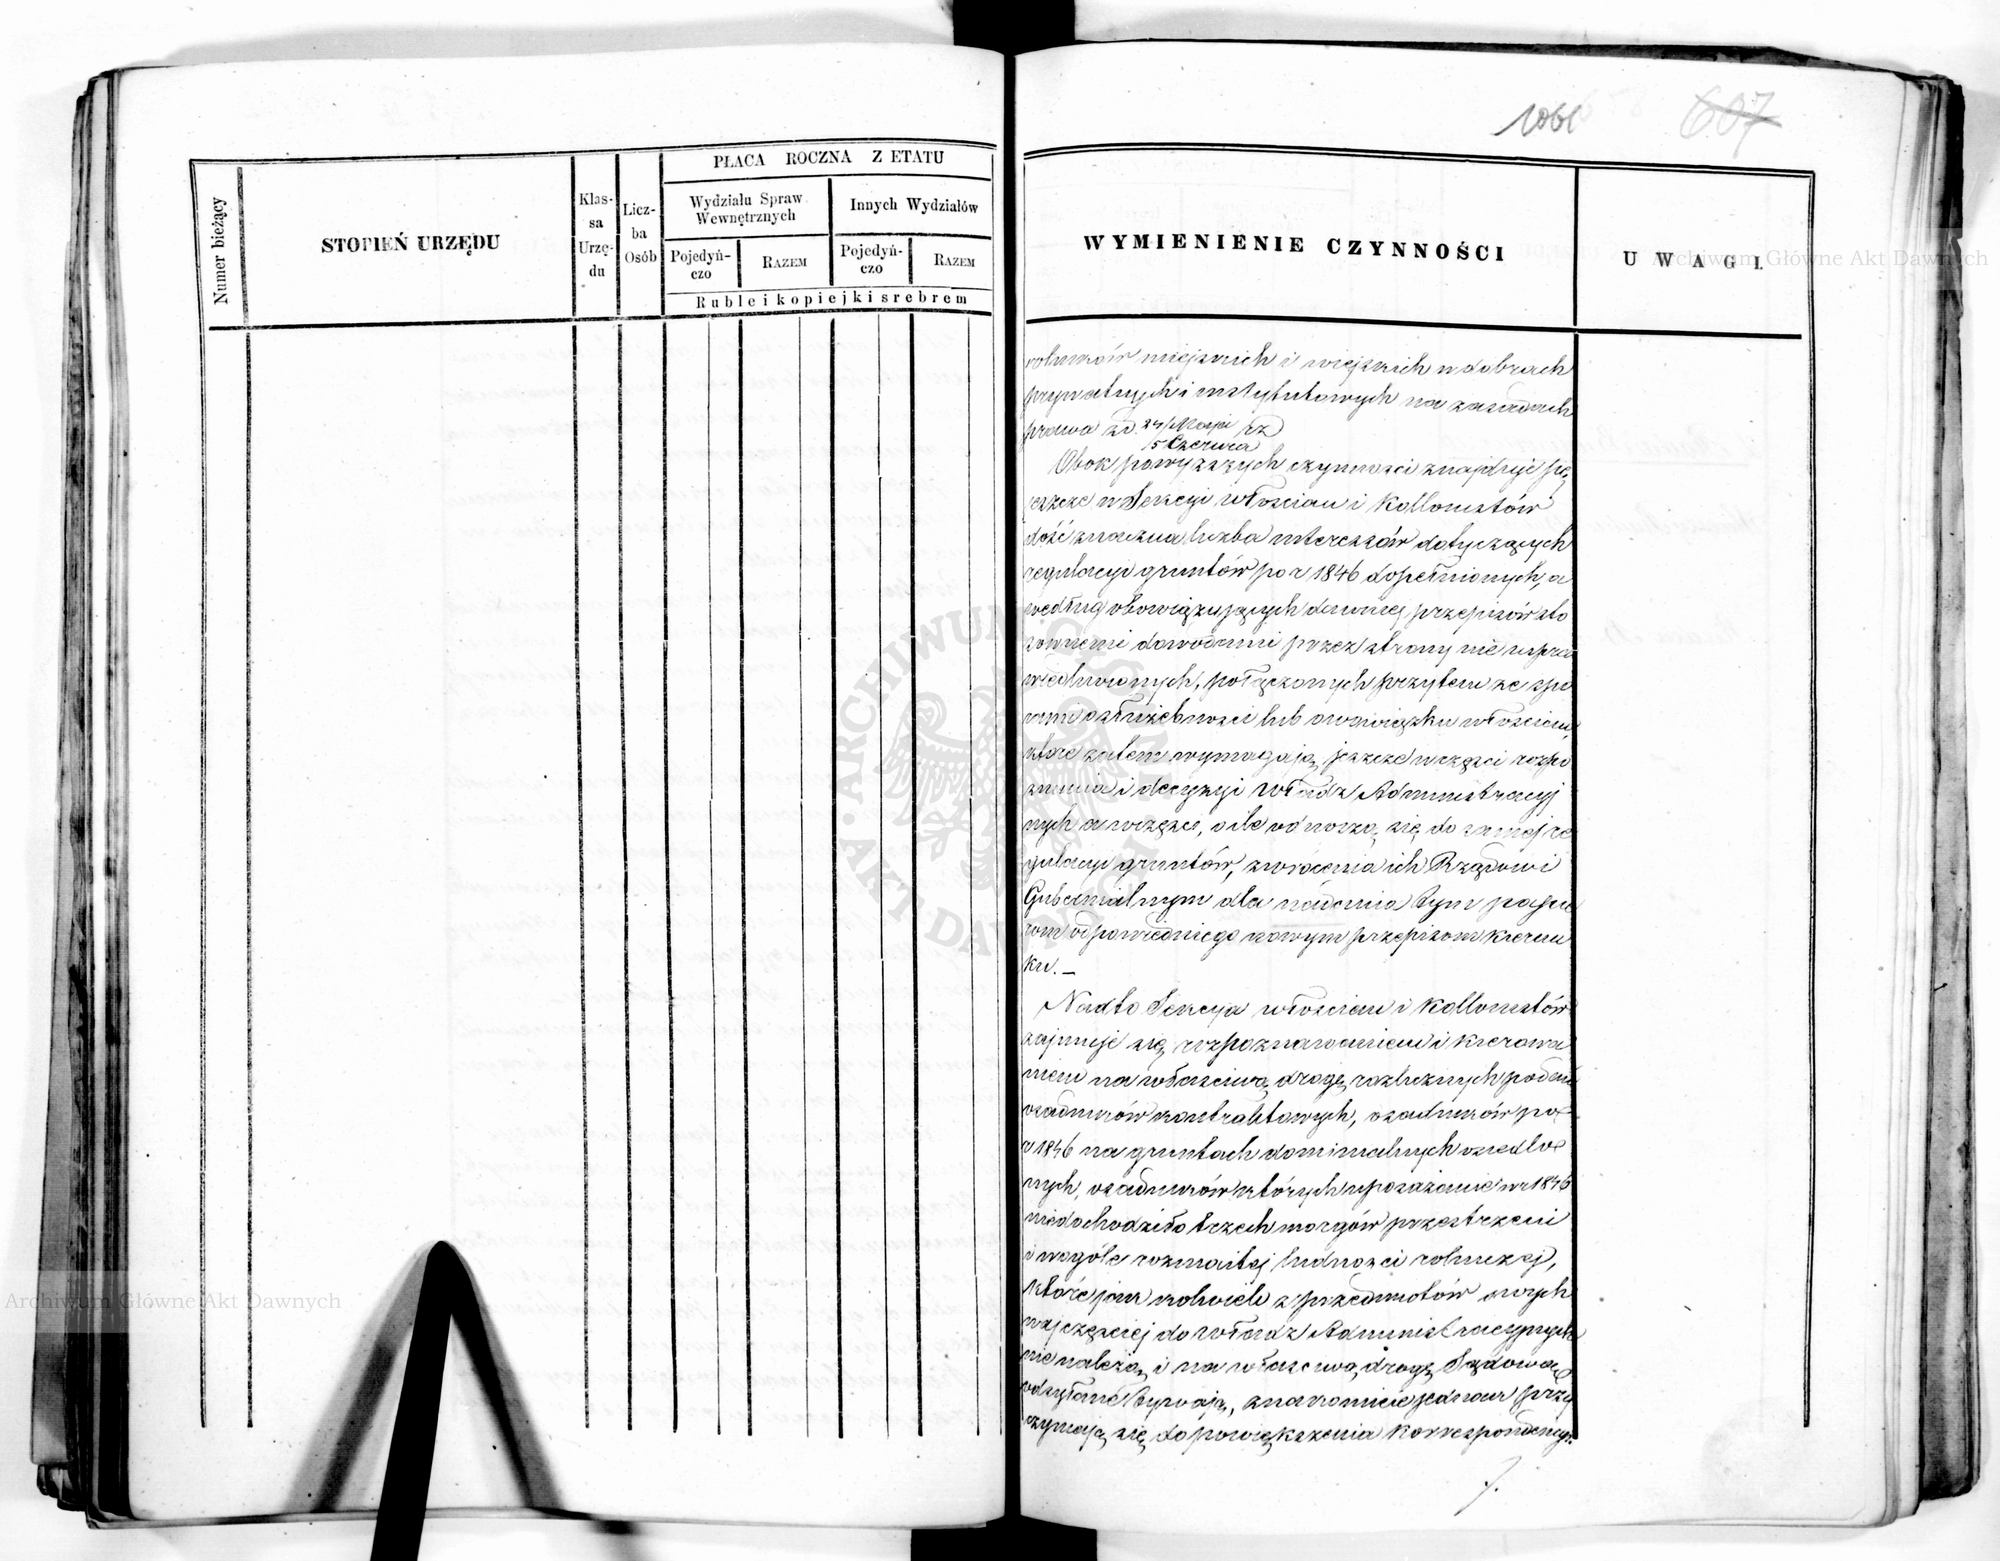 1061 607
Numer bieżący
STOPIEŃ URZĘDU
Klas-
sa
Urzę-
du
Licz-
ba
Osób
PŁACA ROCZNA Z ETATU
Wydziału Spraw
Wewnętrznych
Innych Wydziałów
Pojedyń-
czo
RAZEM
Pojedyń-
czo
RAZEM
Ruble i kopiejki srebrem
WYMIENIENIE CZYNNOŚCI
UWAGI.
rolników miejskich i wiejskich w dobrach
prywatnych i instytutowych na zasadach
prawa z d. 24 Maja / 5 Czerwca rz
Obok powyższych czynności znajduje się
jeszcze w Sekcyi włościan i Kollonistów
dość znaczna liczba interessów dotyczących
regulacyi gruntów po r 1846 dopełnionych, a
według obowiązujących dawniej przepisów sto
sownemi dowodami przez strony nie uspra
wiedliwionych, połączonych przytem ze spo
rami o służebności lub obowiązku włościan,
które zatem wymagają jeszcze w części rozpo
znania i decyzyi Władz Administracyj
nych a w części, o ile odnoszą się do samej re
gulacyi gruntów, zwrócenia ich Rządowi
Gubernialnym dla nadania tym papie
rom odpowiedniego nowym przepisom kierun
ku. —
Nadto Sekcya włościan i Kollonistów
zajmuje się rozpoznawaniem i kierowa
niem na właściwą drogę rozlicznych podań
osadników kontraktowych, osadników po
r 1846 na gruntach dominialnych osiedlo
nych, osadników których uposażenie w r 1846
niedochodziło trzech morgów przestrzeni
i wogóle rozmaitej ludności rolniczej,
które jakkolwiek z przedmiotów swych
najczęściej do Władz Administracyjnych
nie należą i na właściwą drogę Sądową
odsyłane bywają, znakomicie jednak przy
czyniają się do powiększenia Korrespondencyi.
7.
ARCHIWUM GŁÓWNE AKT DAWNYCH
Archiwum Główne Akt Dawnych
Archiwum Główne Akt Dawnych